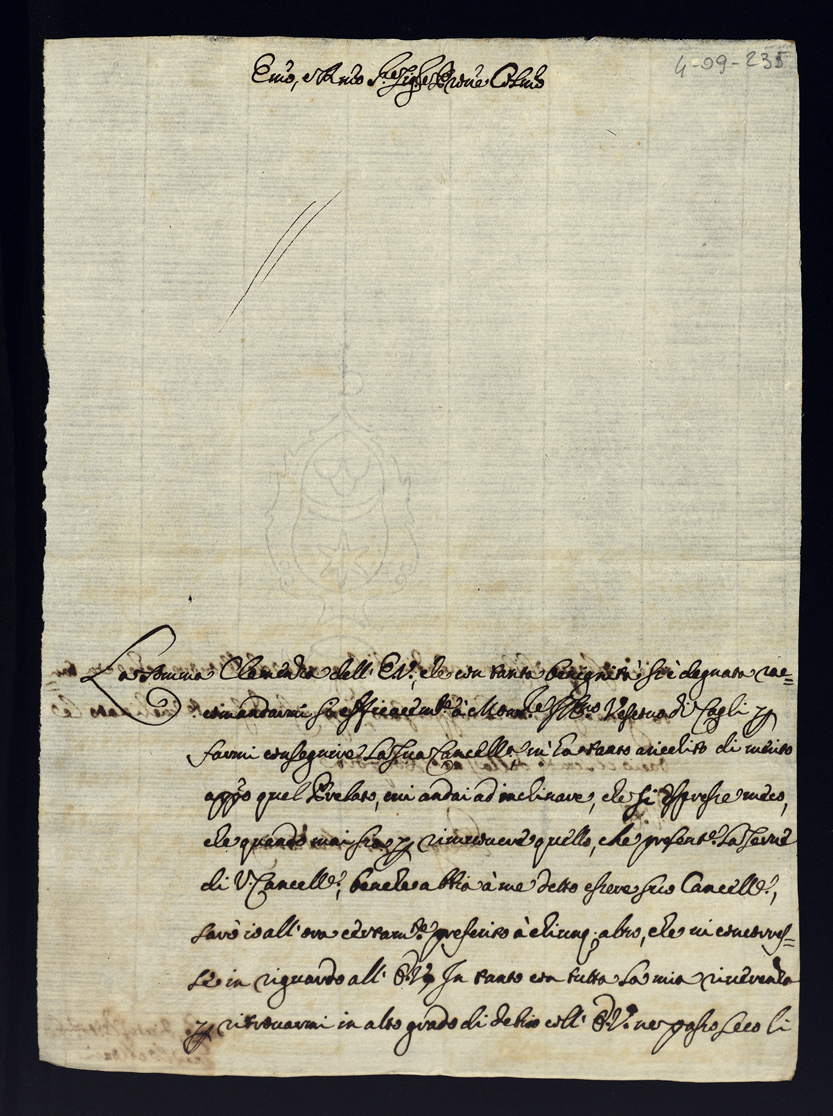 4-09-235
Emo, e Rmo Sre Sig.re Prone Colmo
La somma Clemenza dell' E.V., che con tanta benignità si è degnata rac=
comandarmi sì efficacem.te à Mons.re Ill.mo Vescovo di Cagli p
farmi conseguire la sua Cancell.a, m'hà tanto accresciuto di merito
appo quel Prelato, cui andai ad inchinare, che si espresse meco,
che quando mai sia p rimovere quello, che present.e la serve
di V. Cancell.e, benche abbia à me detto essere suo Cancell.e,
sarò io all'ora certam.te preferito à chiunq; altro, che vi concorres=
se in riguardo all' E.V. In tanto con tutta la mia riverenza
p ritrovarmi in alto grado di debito coll' E.V. ne passo seco li